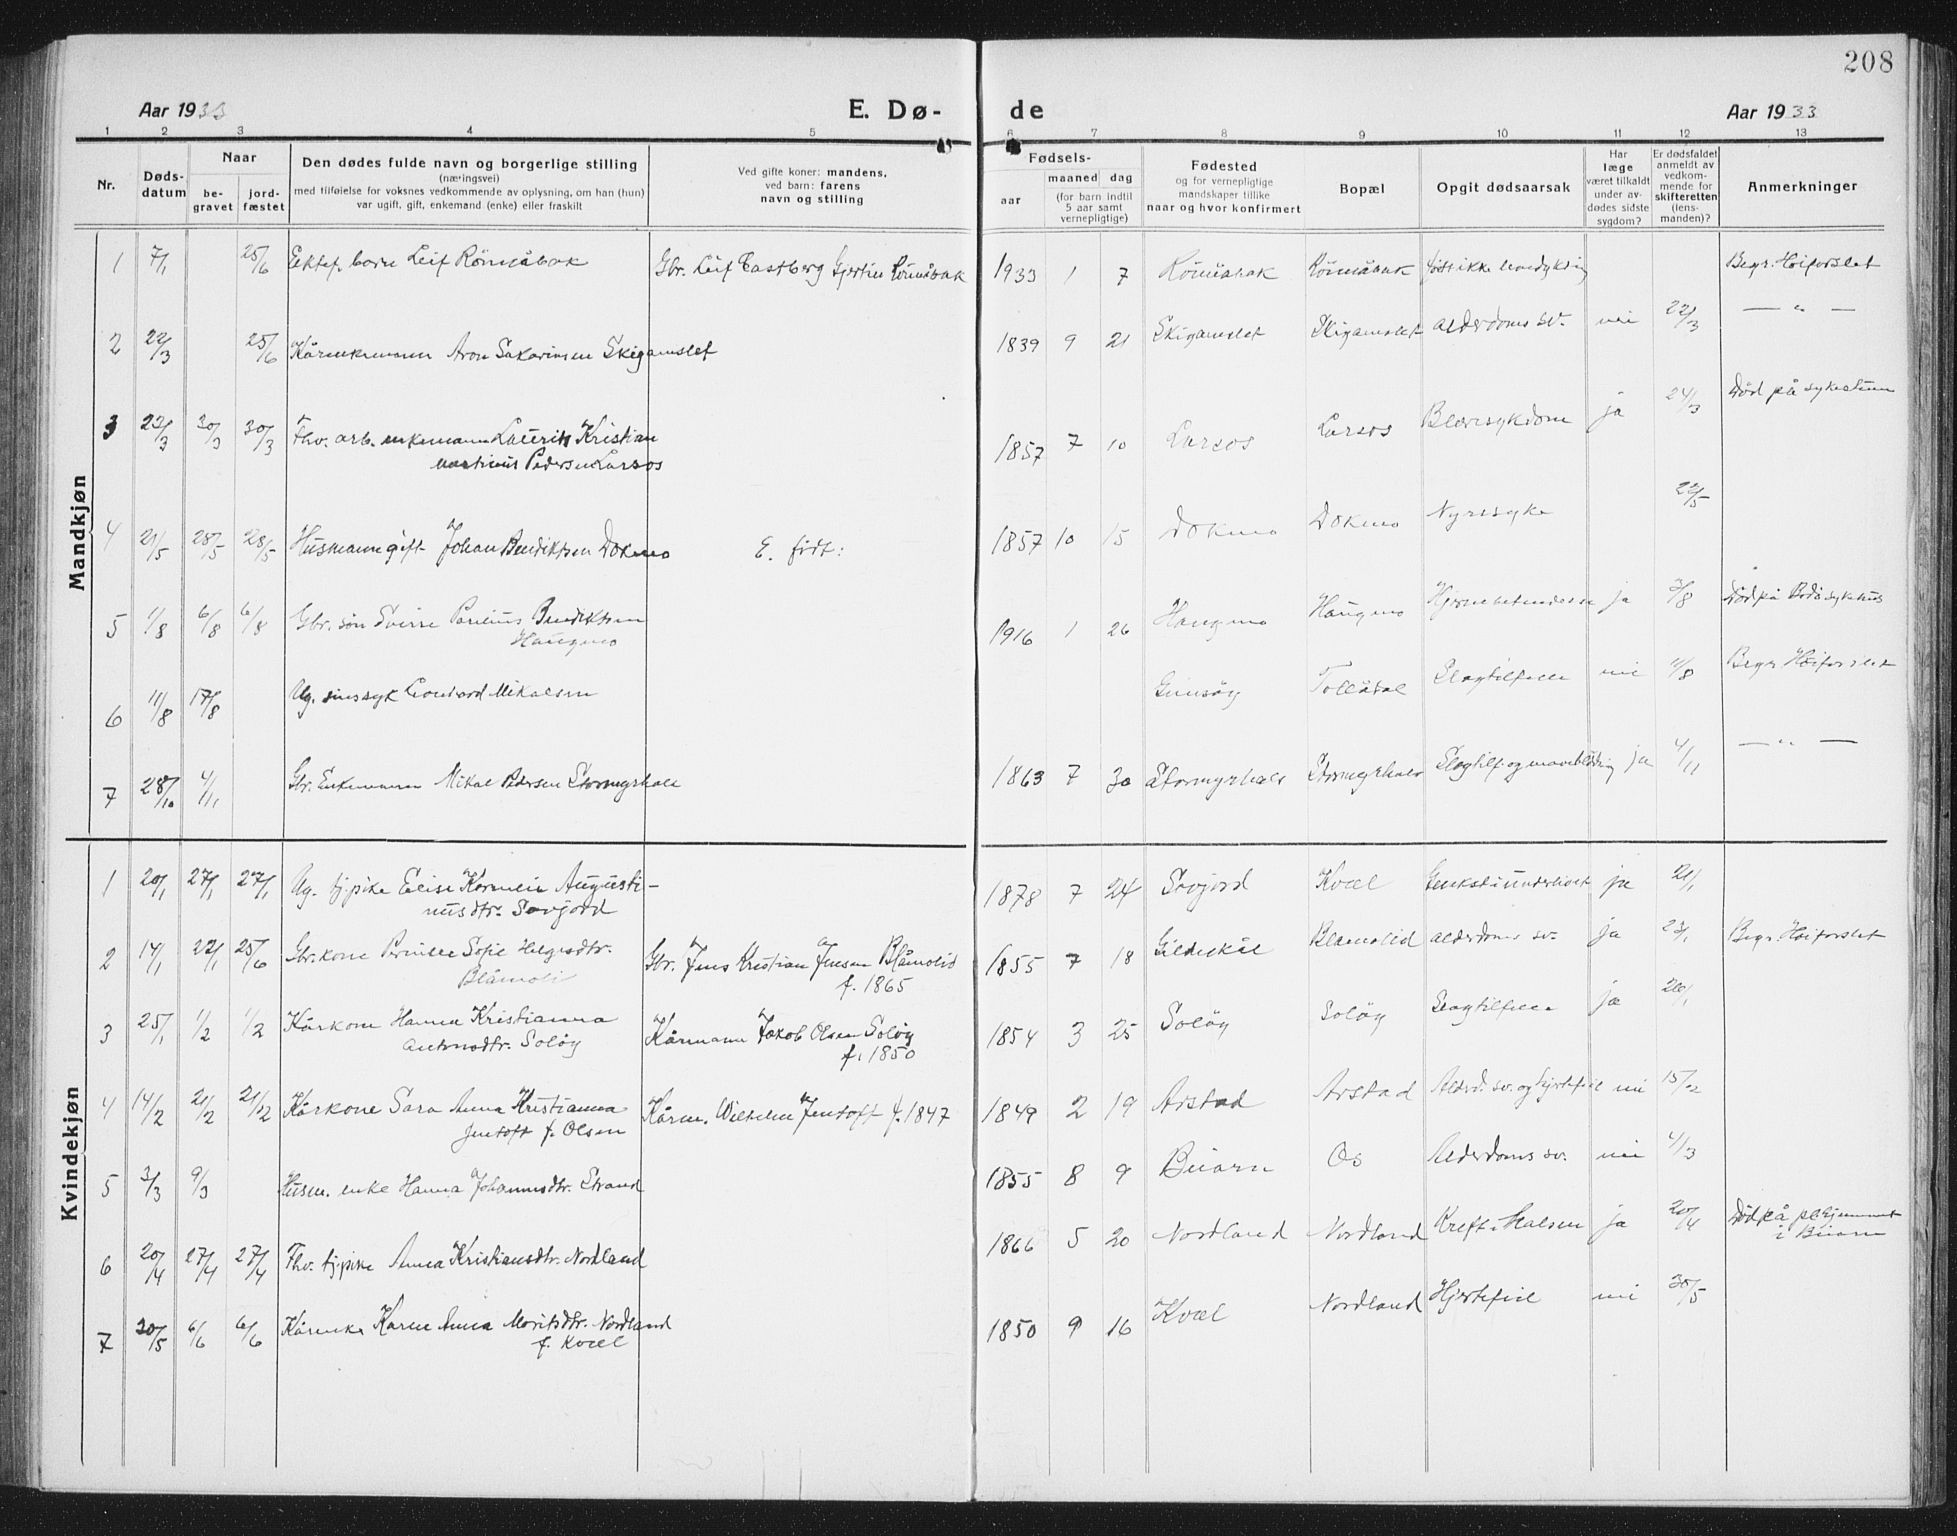 208
Aar 1933 E. Dø- de Aar 1933
1 2 3 4 5 6 7 8 9 10 11 12 13
Nr. Døds-datum Naar be-gravet jord-fæstet Den dødes fulde navn og borgerlige stilling (næringsvei) med tilføielse for voksnes vedkommende av oplysning, om han (hun) var ugift, gift, enkemand (enke) eller fraskilt Ved gifte koner: mandens, ved barn: farens navn og stilling Fødsels- aar maaned dag (for barn indtil 5 aar samt vernepligtige) Fødested og for vernepligtige mandskaper tillike naar og hvor konfirmert Bopæl Opgit dødsaarsak Har læge været tilkaldt under av-dødes sidste sygdom? Er dødsfaldet anmeldt av vedkom-mende for skifteretten (lens-manden)? Anmerkninger
Mandkjøn
1 7/1 25/6 Ektef. barn Leif Rönnåbak Gbr. Leif Eastberg Gjertin Rönnåbak 1933 1 7 Rönnåbak Rönnåbak født ikke levedyktig Begr. Høiforslet
2 22/3 25/6 Kårenkemann Aron Sakariasen Skigamslet 1839 9 21 Skigamslet Skigamslet Alderdoms sv. nei 22/3 — " —
3 22/3 30/3 30/3 Fhv. arb. enkemann Laurits Kristian
Martinus Pedersen Larsos 1857 7 10 Larsos Larsos Blæresykdom ja 24/3 Död på sykestuen
4 21/5 28/5 28/5 Husmann gift Johan Bendiktsen Dokmo E. født: 1857 10 15 Dokmo Dokmo Nyresyke 22/5
5 1/8 6/8 6/8 Gbr. sön Sverre Parelius Bendiktsen
Haugmo 1916 1 26 Haugmo Haugmo Hjernebetendelse ja 3/8 Död på Bodø sykehus
6 11/8 17/8 Ug. sinssyk Leonhard Mikalsen Gimsöy Tollådal Slagtilfelle nei 11/8 Begr. Høiforslet
7 28/10 4/11 Gbr. Enkemann Mikal Pedersen Stormyrhals 1863 7 30 Stormyrhals Stormyrhals Slagtilf. og maveblödning ja 4/11 — " —
Kvindekjøn
1 20/1 27/1 27/1 Ug. tj.pike Elise Kornelie Augusti-
nusdtr. Sovjord 1878 7 24 Sovjord Kvæl ja 21/1
2 14/1 22/1 25/6 Gbr.kone Pernille Sofie Helgesdtr.
Blåmoli Gbr. Jens Kristian Jensen Blåmolid
f. 1865 1855 7 18 Gildeskål Blåmolid Alderdoms sv. ja 23/1 Begr. Høiforslet
3 25/1 1/2 1/2 Kårkone Hanna Kristianna
Antonsdtr. Solöy Kårmann Jakob Olsen Solöy
f. 1850 1854 3 25 Solöy Solöy Slagtilfelle ja 26/1
4 14/2 21/2 21/2 Kårkone Sara Anna Kristianna
Jentoft f. Olsen Kårm. Wilhelm Jentoft f. 1847 1849 2 19 Arstad Arstad Alderd. sv. og hjertefeil nei 15/2
5 3/3 9/3 Husm. enke Hanna Johannesdtr. Strand 1855 8 9 Beiarn Os Alderdoms sv. nei 4/3
6 20/4 27/4 27/4 Fhv. tj.pike Anna Kristiansdtr. Nordland 1866 5 20 Nordland Nordland Kreft i Halsen ja 20/4 Död på plhjemmet
i Beiarn
7 30/5 6/6 6/6 Kårenke Karen Anna Moritsdtr. Nordland
f. Kvæl 1850 9 16 Kvæl Nordland Hjertefeil nei 30/5